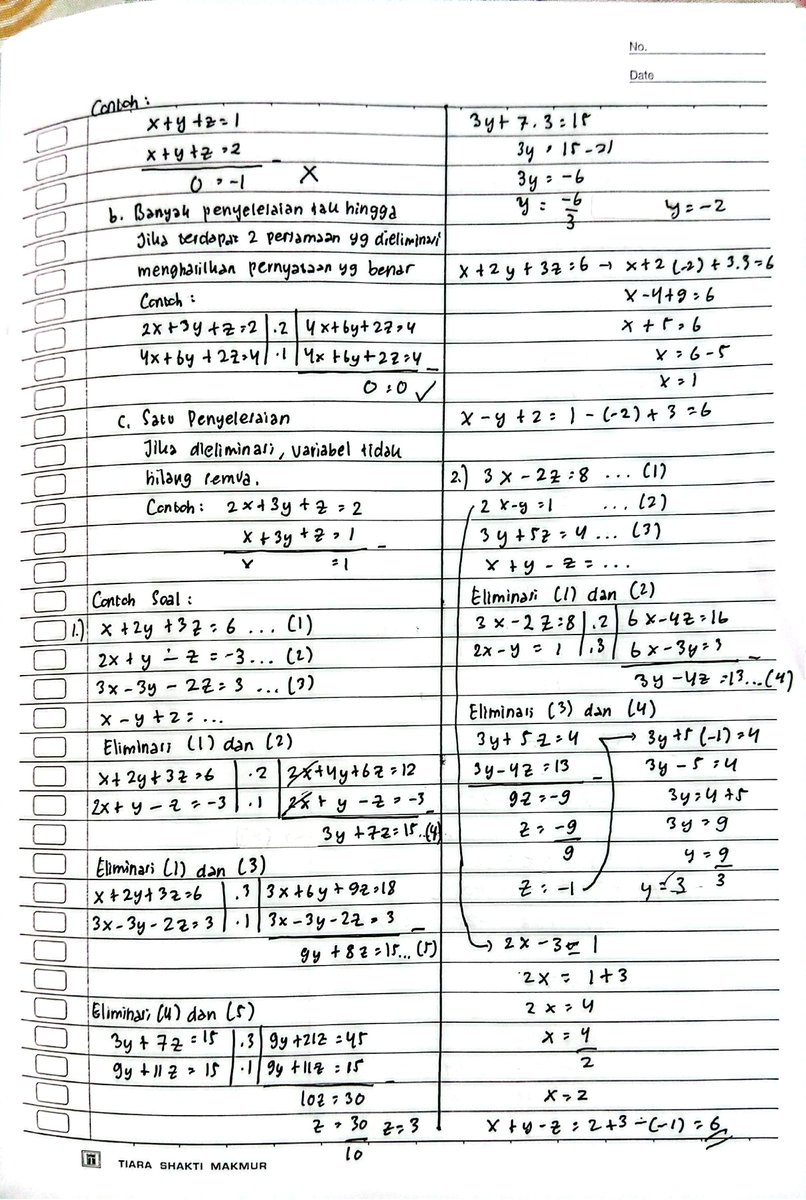 No.
Date
Contoh :
x+y+z=1
x+y+z=2 -
0 = -1 X
b. Banyak penyelesaian tak hingga
Jika terdapat 2 persamaan yg dieliminasi
menghasilkan pernyataan yg benar
Contoh :
2x+3y+z=2 | .2 | 4x+6y+2z=4
4x+6y+2z=4 | .1 | 4x+6y+2z=4 -
0=0 ✓
c. Satu Penyelesaian
Jika dieliminasi, variabel tidak
hilang semua.
Contoh : 2x+3y+z=2
x+3y+z=1 -
x =1
Contoh Soal :
1.) x+2y+3z=6 ... (1)
2x+y-z=-3... (2)
3x-3y-2z=3 ... (3)
x-y+z=...
Eliminasi (1) dan (2)
x+2y+3z=6 | .2 | 2x+4y+6z=12
2x+y-z=-3 | .1 | 2x+y-z=-3 -
3y+7z=15..(4)
Eliminasi (1) dan (3)
x+2y+3z=6 | .3 | 3x+6y+9z=18
3x-3y-2z=3 | .1 | 3x-3y-2z=3 -
9y+8z=15... (5)
Eliminasi (4) dan (5)
3y+7z=15 | .3 | 9y+21z=45
9y+11z=15 | .1 | 9y+11z=15 -
10z=30
z=30 z=3
10
3y+7.3=15
3y=15-21
3y=-6
y=-6 y=-2
3
x+2y+3z=6 → x+2(-2)+3.3=6
x-4+9=6
x+5=6
x=6-5
x=1
x-y+z=1-(-2)+3=6
2.) 3x-2z=8 ... (1)
2x-y=1 ... (2)
3y+5z=4 ... (3)
x+y-z=...
Eliminasi (1) dan (2)
3x-2z=8 | .2 | 6x-4z=16
2x-y=1 | .3 | 6x-3y=3 -
3y-4z=13...(4)
Eliminasi (3) dan (4)
3y+5z=4 → 3y+5(-1)=4
3y-4z=13 - 3y-5=4
9z=-9 3y=4+5
z=-9 3y=9
9 y=9
z=-1 y=3 3
→ 2x-3=1
2x=1+3
2x=4
x=4
2
x=2
x+y-z=2+3-(-1)=6
TIARA SHAKTI MAKMUR